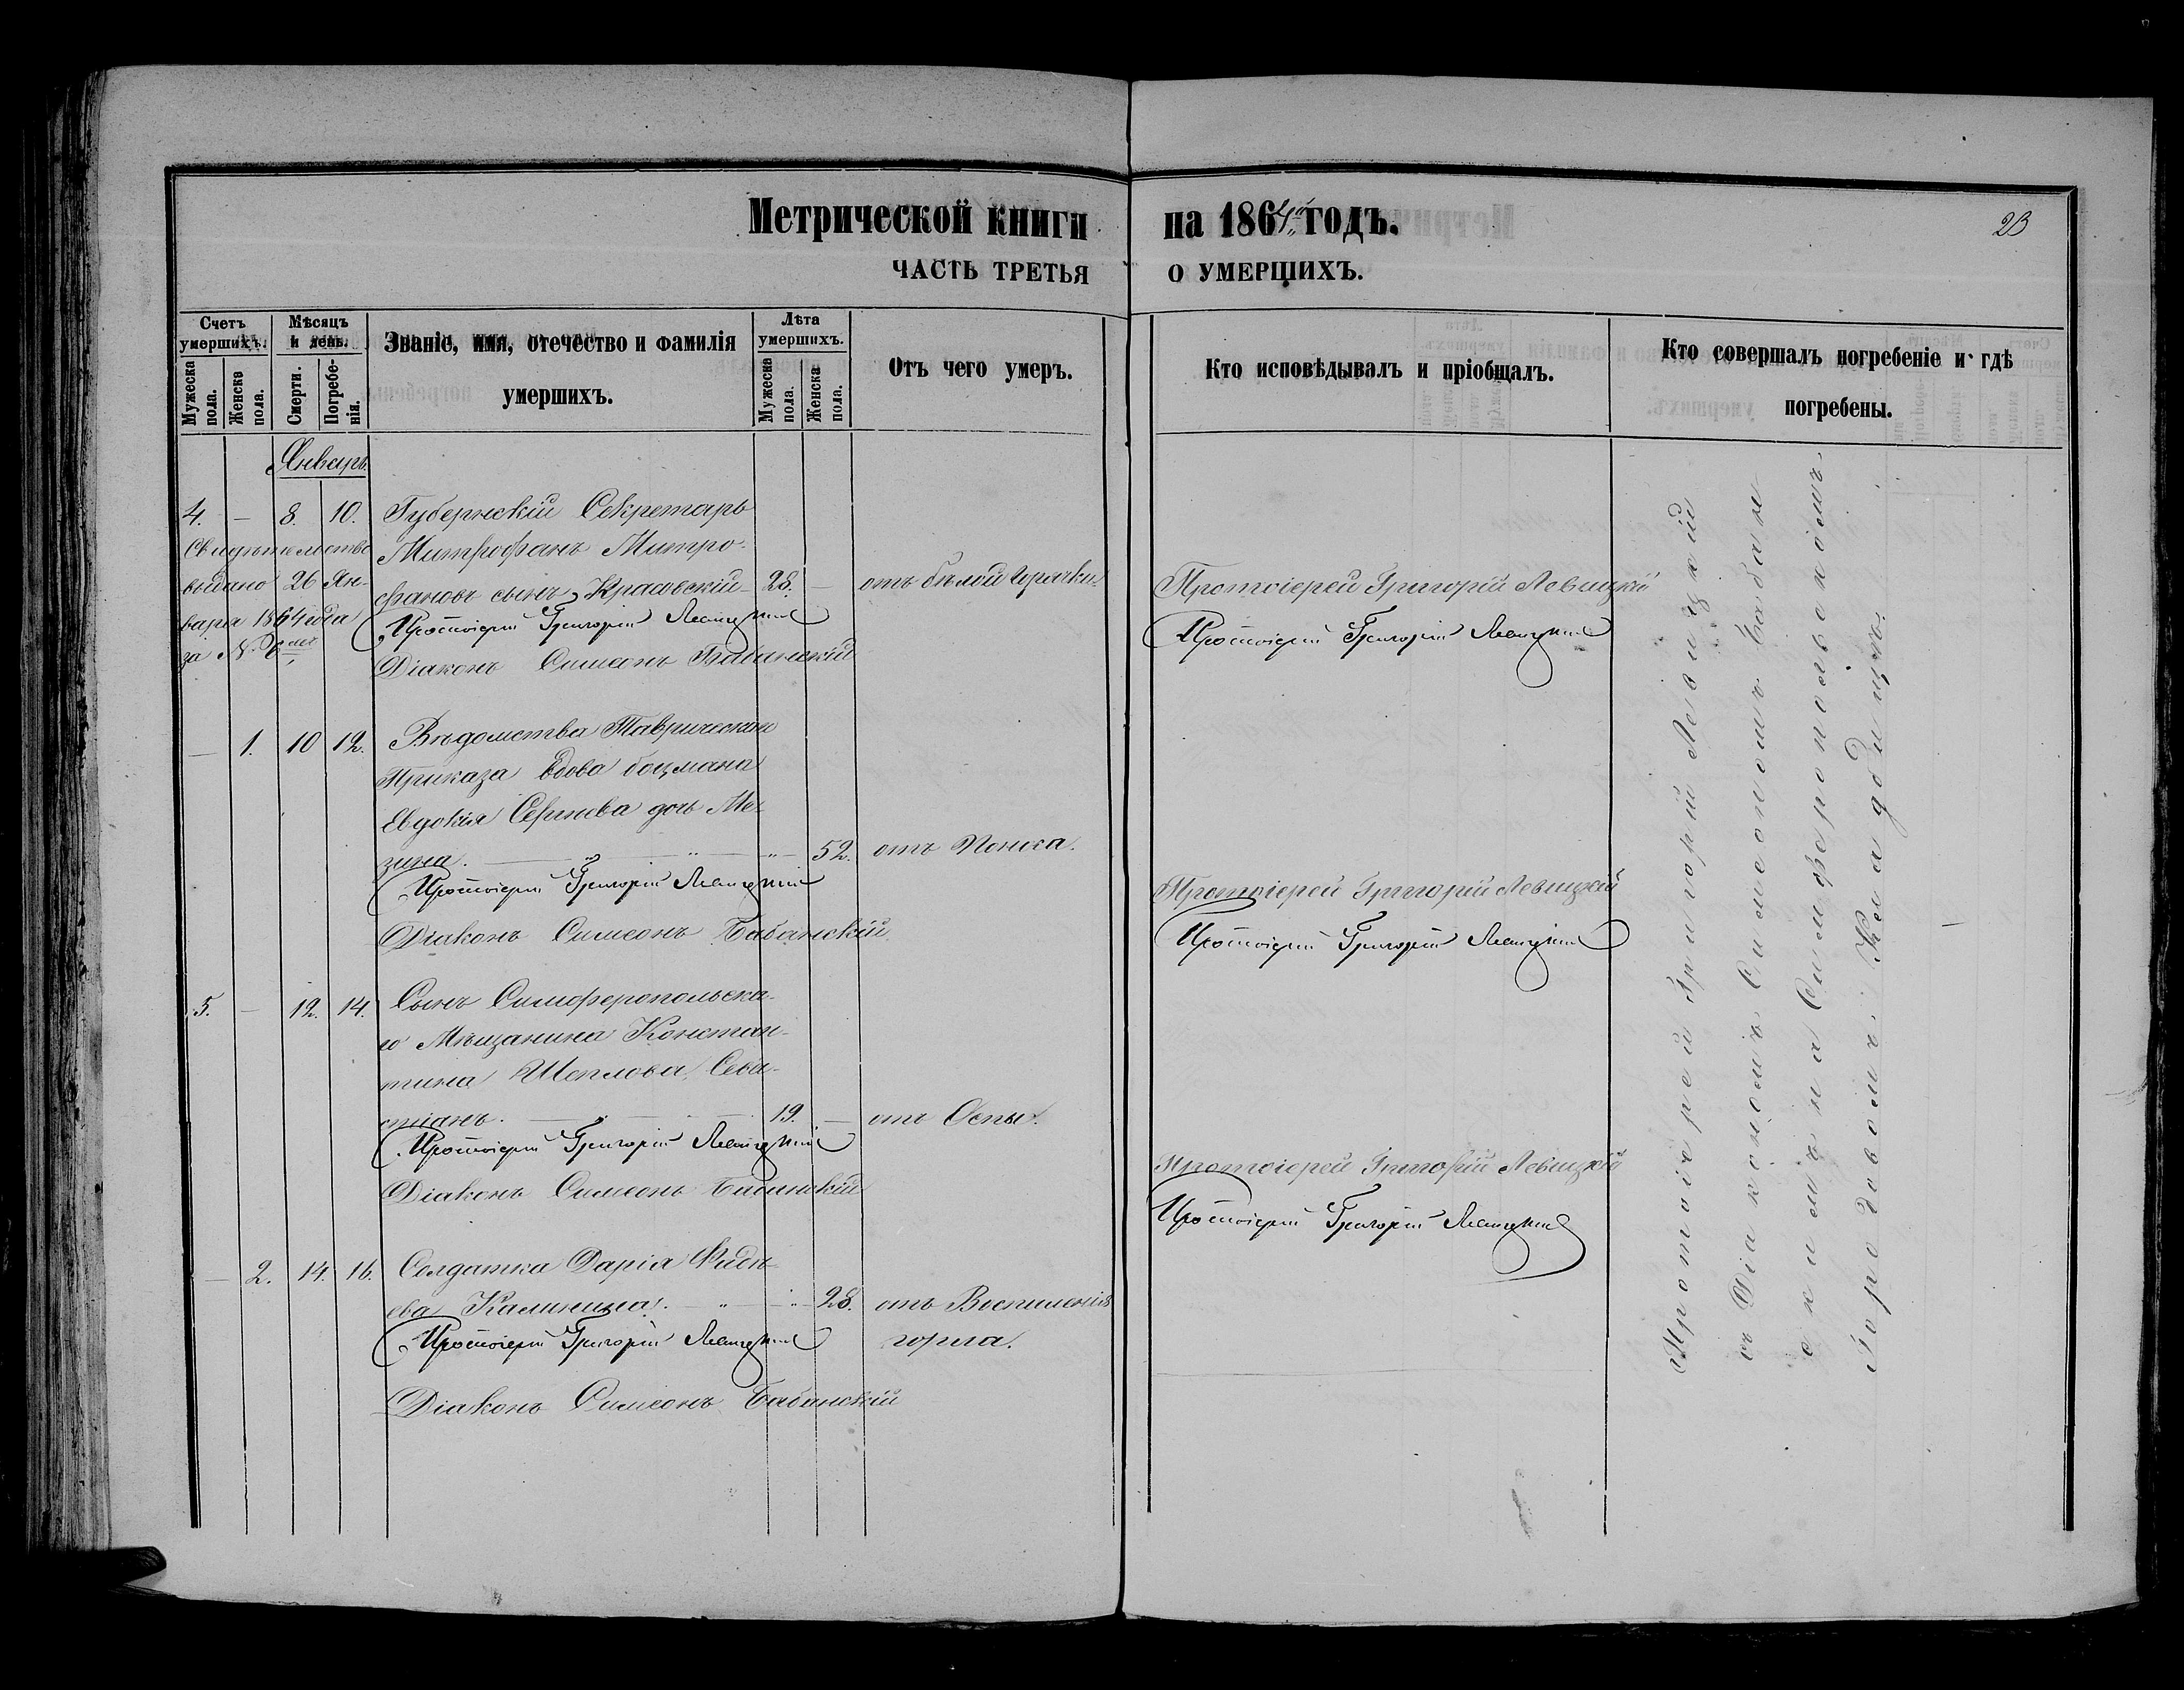 Метрической книги на 1864й годъ.
23
ЧАСТЬ ТРЕТЬЯ О УМЕРШИХЪ.
Счетъ умершихъ.
Мужеска пола.
Женска пола.
Мѣсяцъ и день.
Смерти.
Погребенія.
Званіе, имя, отечество и фамилія
умершихъ.
Лѣта умершихъ.
Мужеска пола.
Женска пола.
Отъ чего умеръ.
Кто исповѣдывалъ и пріобщалъ.
Кто совершалъ погребеніе и гдѣ
погребены.
Январь.
4. — 8. 10. Губернскій Секретарь
Свидѣтельство
Митрофанъ Митро-
выдано 26 Ян-
фановъ сынъ Красовскій 28. — отъ бѣлой горячки
Протоіерей Григорій Левицкій
варя 1864 года
Протоіерей Григорій Левицкій
Протоіерей Григорій Левицкій
за №
Діаконъ Симеонъ Бабанскій
— 1. 10 12. Вѣдомства Таврическаго
Приказа вдова боцмана
Евдокія Сергѣева дочь Ме-
зина. 52. отъ Поноса.
Протоіерей Григорій Левицкій
Протоіерей Григорій Левицкій
Діаконъ Симеонъ Бабанскій
Протоіерей Григорій Левицкій
5. — 12. 14. Сынъ Симферопольска-
го Мѣщанина Констан-
тина Севас-
тіанъ. 19. — отъ Оспы.
Протоіерей Григорій Левицкій
Протоіерей Григорій Левицкій
Діаконъ Симеонъ Бабанскій
Протоіерей Григорій Левицкій
— 2. 14. 16. Солдатка Дарія
ева Калинина. 28. отъ Воспаленія
горла.
Протоіерей Григорій Левицкій
Діаконъ Симеонъ Бабанскій
Протоіерей Григорій Левицкій
съ Діакономъ Симеономъ Бабан
скимъ на Симферопольскомъ
Городовомъ Кладбищѣ.